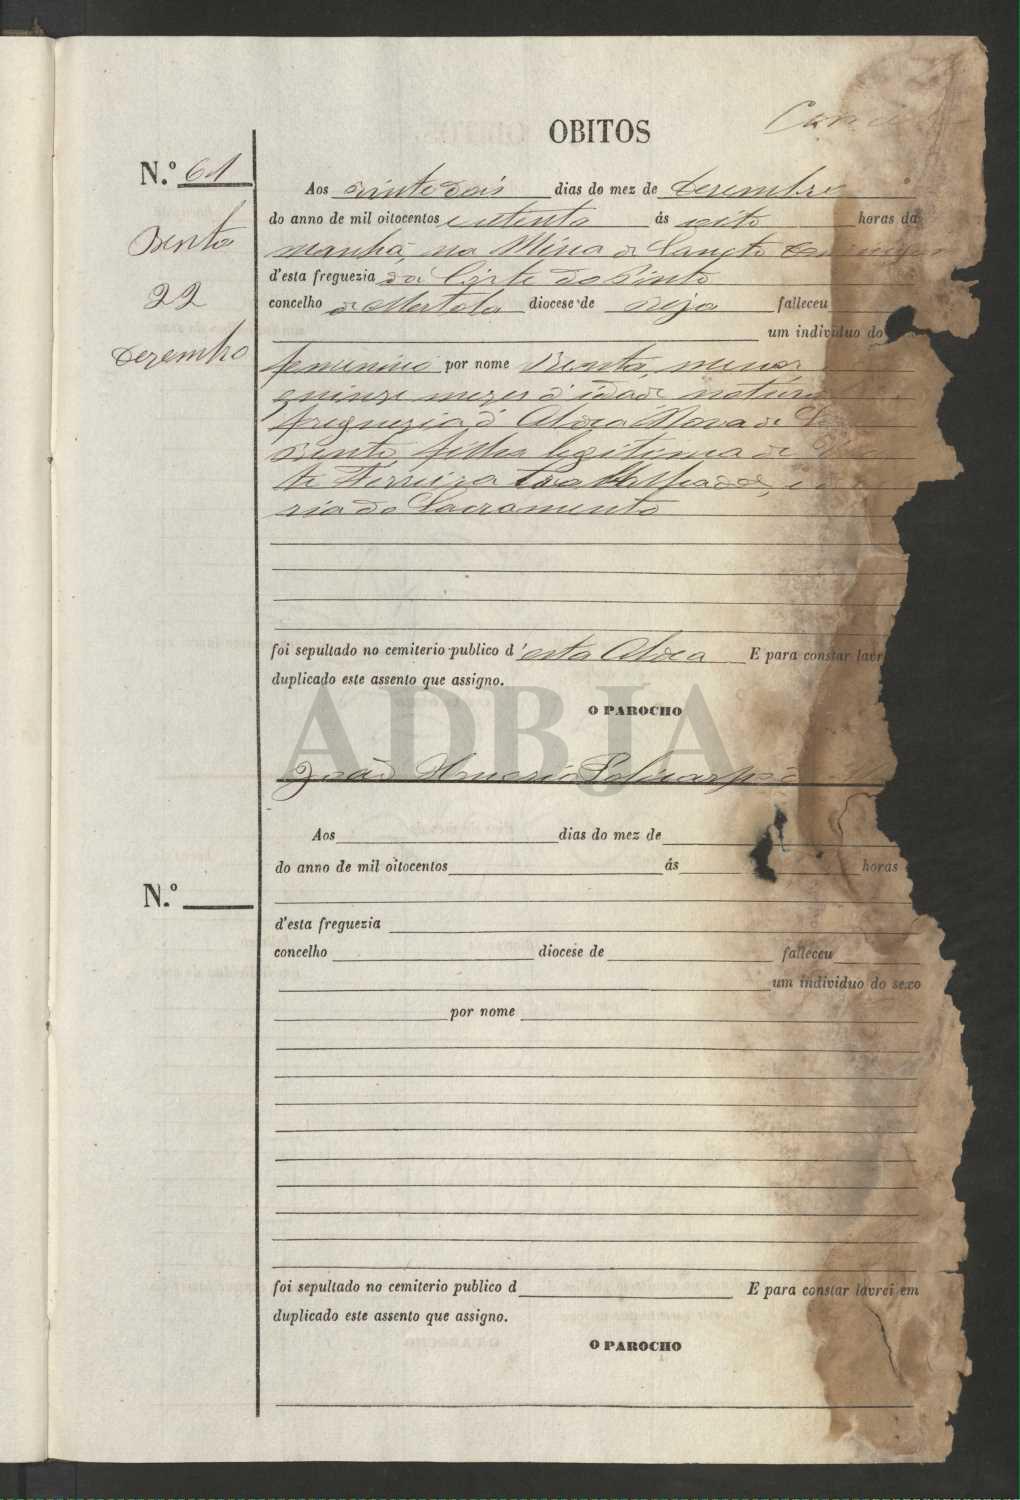 OBITOS
N.º 61
Aos vinte dois dias do mez de Dezembro
do anno de mil oitocentos e setenta ás oito horas da
Bento
manhã, na Mina de Sancto Domingos
d'esta freguezia da Côrte do Pinto
22
concelho de Mertola diocese de Beja falleceu
um individuo do
Dezembro
femenino por nome Benta, menor
quinze mezes d'idade natural
freguezia d' Aldea Nova de
Bento, filha legitima de
te Ferreira trabalhador, e
ria do Sacramento
foi sepultado no cemiterio publico d'esta Aldea E para constar lavr
duplicado este assento que assigno.
O PAROCHO
ADBJA
João Policarpo
Aos dias do mez de
do anno de mil oitocentos ás horas
N.º
d'esta freguezia
concelho diocese de falleceu
um individuo do sexo
por nome
foi sepultado no cemiterio publico d E para constar lavrei em
duplicado este assento que assigno.
O PAROCHO